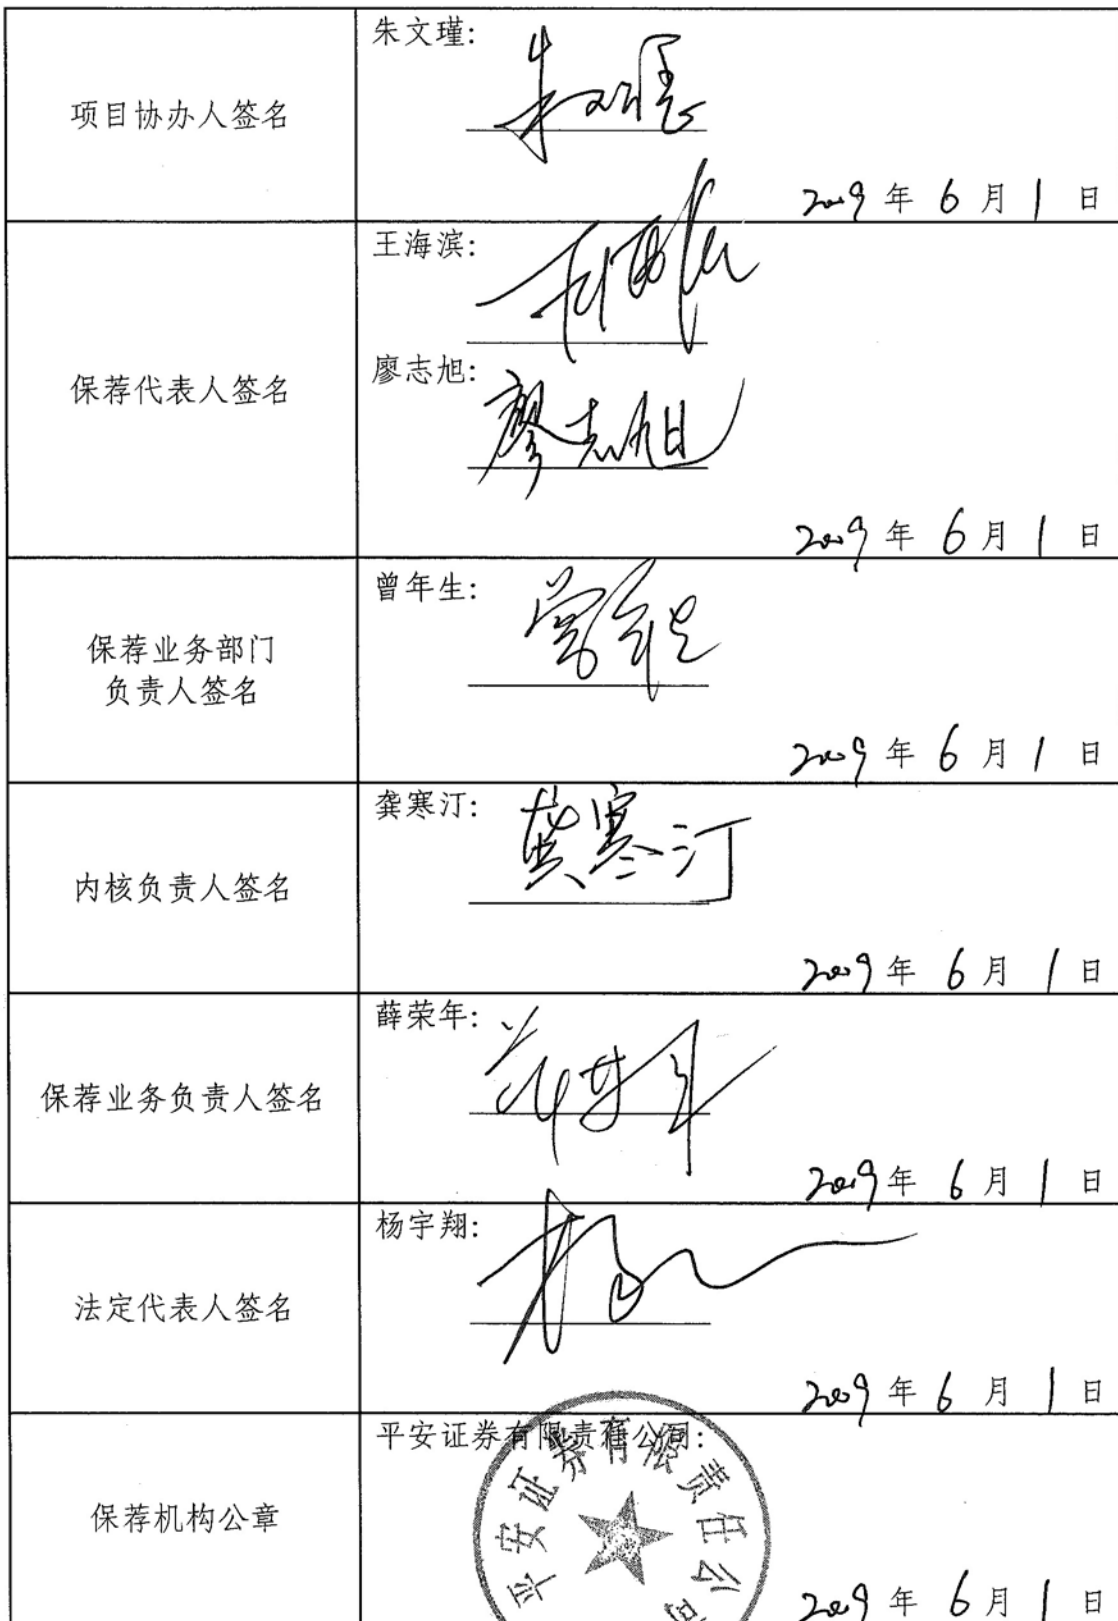 项目协办人签名
朱文瑾:
朱文瑾
2009年6月1日
保荐代表人签名
王海滨:
王海滨
廖志旭:
廖志旭
2009年6月1日
保荐业务部门
负责人签名
曾年生:
曾年生
2009年6月1日
内核负责人签名
龚寒汀:
龚寒汀
2009年6月1日
保荐业务负责人签名
薛荣年:
薛荣年
2009年6月1日
法定代表人签名
杨宇翔:
2009年6月1日
保荐机构公章
平安证券有限责任公司:
平安证券有限责任公司
2009年6月1日